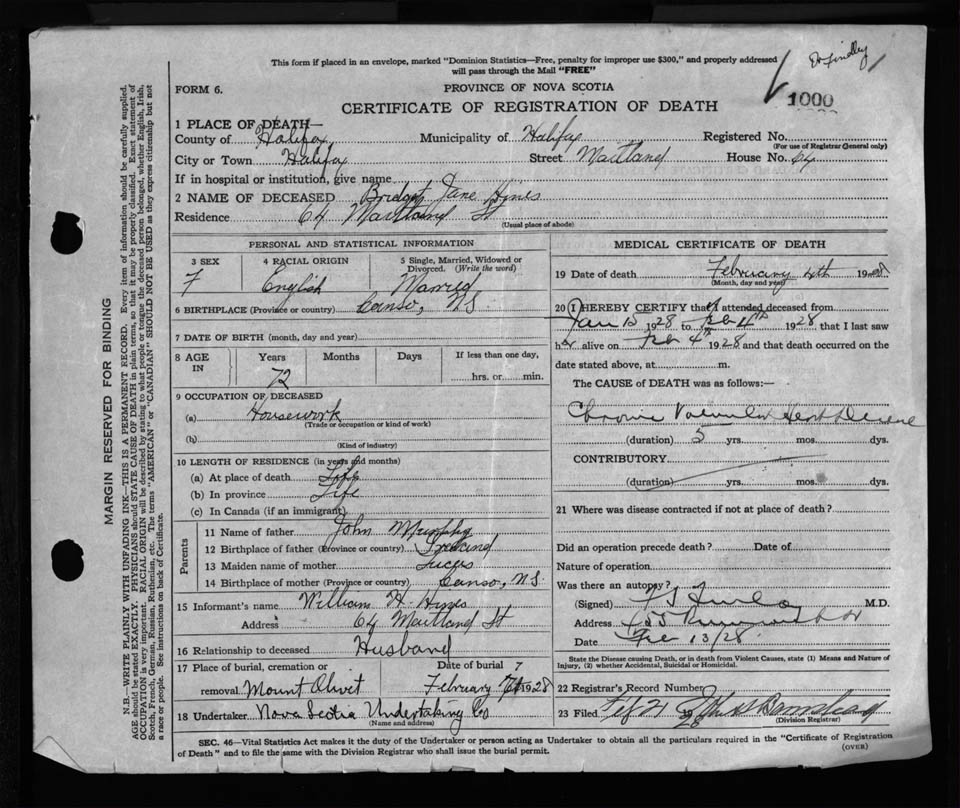 Dr Findley
This form if placed in an envelope, marked "Dominion Statistics—Free, penalty for improper use $300," and properly addressed
will pass through the Mail "FREE"
FORM 6.
PROVINCE OF NOVA SCOTIA
1000
CERTIFICATE OF REGISTRATION OF DEATH
1 PLACE OF DEATH—
County of Halifax Municipality of Halifax Registered No.
(For use of Registrar General only)
City or Town Halifax Street Maitland House No. 64
If in hospital or institution, give name
2 NAME OF DECEASED Bridget Jane Hines
Residence 64 Maitland St
(Usual place of abode)
PERSONAL AND STATISTICAL INFORMATION
3 SEX 4 RACIAL ORIGIN 5 Single, Married, Widowed or
Divorced. (Write the word)
F English Married
6 BIRTHPLACE (Province or country) Canso, NS
7 DATE OF BIRTH (month, day and year)
8 AGE IN Years Months Days If less than one day,
72 hrs. or min.
9 OCCUPATION OF DECEASED
(a) Housework
(Trade or occupation or kind of work)
(b)
(Kind of industry)
10 LENGTH OF RESIDENCE (in years and months)
(a) At place of death Life
(b) In province Life
(c) In Canada (if an immigrant)
Parents
11 Name of father John Murphy
12 Birthplace of father (Province or country)
13 Maiden name of mother
14 Birthplace of mother (Province or country) Canso, NS.
15 Informant's name William H. Hines
Address 64 Maitland St
16 Relationship to deceased Husband
17 Place of burial, cremation or Date of burial 7
removal Mount Olivet February 1928
18 Undertaker Nova Scotia Undertaking Co
(Name and address)
MEDICAL CERTIFICATE OF DEATH
19 Date of death February 4th 1928
(Month, day and year)
20 I HEREBY CERTIFY that I attended deceased from
Jan 15 1928 to Feb 4th 1928, that I last saw
her alive on Feb 4th 1928 and that death occurred on the
date stated above, at m.
The CAUSE of DEATH was as follows:—
Chronic Valvular Heart Disease
(duration) 5 yrs. mos. dys.
CONTRIBUTORY
(duration) yrs. mos. dys.
21 Where was disease contracted if not at place of death?
Did an operation precede death? Date of
Nature of operation
Was there an autopsy?
(Signed) M.D.
Address
Date Feb 13/28
State the Disease causing Death, or in death from Violent Causes, state (1) Means and Nature of
Injury, (2) whether Accidental, Suicidal or Homicidal.
22 Registrar's Record Number
23 Filed Feb 21 1928
(Division Registrar)
SEC. 46—Vital Statistics Act makes it the duty of the Undertaker or person acting as Undertaker to obtain all the particulars required in the "Certificate of Registration
of Death" and to file the same with the Division Registrar who shall issue the burial permit.
(OVER)
MARGIN RESERVED FOR BINDING
N.B.—WRITE PLAINLY WITH UNFADING INK—THIS IS A PERMANENT RECORD. Every item of information should be carefully supplied.
AGE should be stated EXACTLY. PHYSICIANS should STATE CAUSE OF DEATH in plain terms, so that it may be properly classified. Exact statement of
OCCUPATION is very important. RACIAL ORIGIN will be described by stating to what people or tongue the deceased person belonged, whether English, Irish,
Scotch, French, German, Russian, Ruthenian, etc. The terms "AMERICAN" or "CANADIAN" SHOULD NOT BE USED as they express citizenship but not
a race or people. See instructions on back of Certificate.